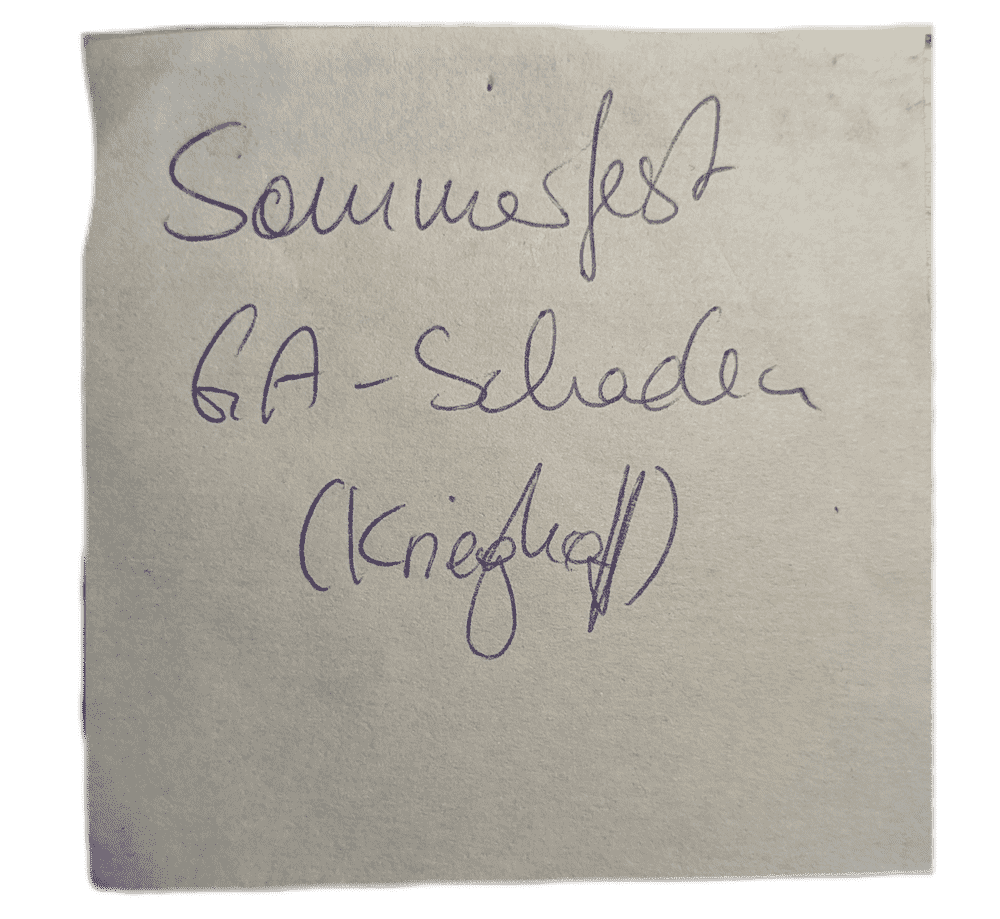 Sommerfest
GA-Schaden
(Krieghoff)